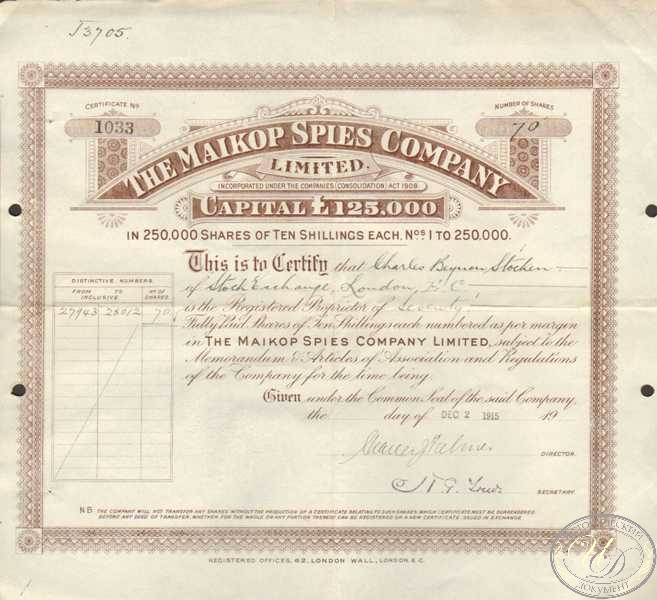 J3705.
CERTIFICATE No
1033
NUMBER OF SHARES
70
THE MAIKOP SPIES COMPANY
LIMITED.
INCORPORATED UNDER THE COMPANIES (CONSOLIDATION) ACT 1908
CAPITAL £125,000
IN 250,000 SHARES OF TEN SHILLINGS EACH, Nos 1 TO 250,000.
This is to Certify that Charles Beynon Stocken
of Stock Exchange, London, E.C
is the Registered Proprietor of Seventy
Fully Paid Shares of Ten Shillings each numbered as per margin
in THE MAIKOP SPIES COMPANY LIMITED, subject to the
Memorandum & Articles of Association and Regulations
of the Company for the time being.
DISTINCTIVE NUMBERS.
FROM TO
INCLUSIVE
No OF SHARES.
27943 28012 70
Given under the Common Seal of the said Company,
the day of DEC 2 1915 19
DIRECTOR.
SECRETARY.
N B THE COMPANY WILL NOT TRANSFER ANY SHARES WITHOUT THE PRODUCTION OF A CERTIFICATE RELATING TO SUCH SHARES, WHICH CERTIFICATE MUST BE SURRENDERED
BEFORE ANY DEED OF TRANSFER, WHETHER FOR THE WHOLE OR ANY PORTION THEREOF, CAN BE REGISTERED OR A NEW CERTIFICATE ISSUED IN EXCHANGE
REGISTERED OFFICES, 62, LONDON WALL, LONDON, E.C.
ДОКУМЕНТ